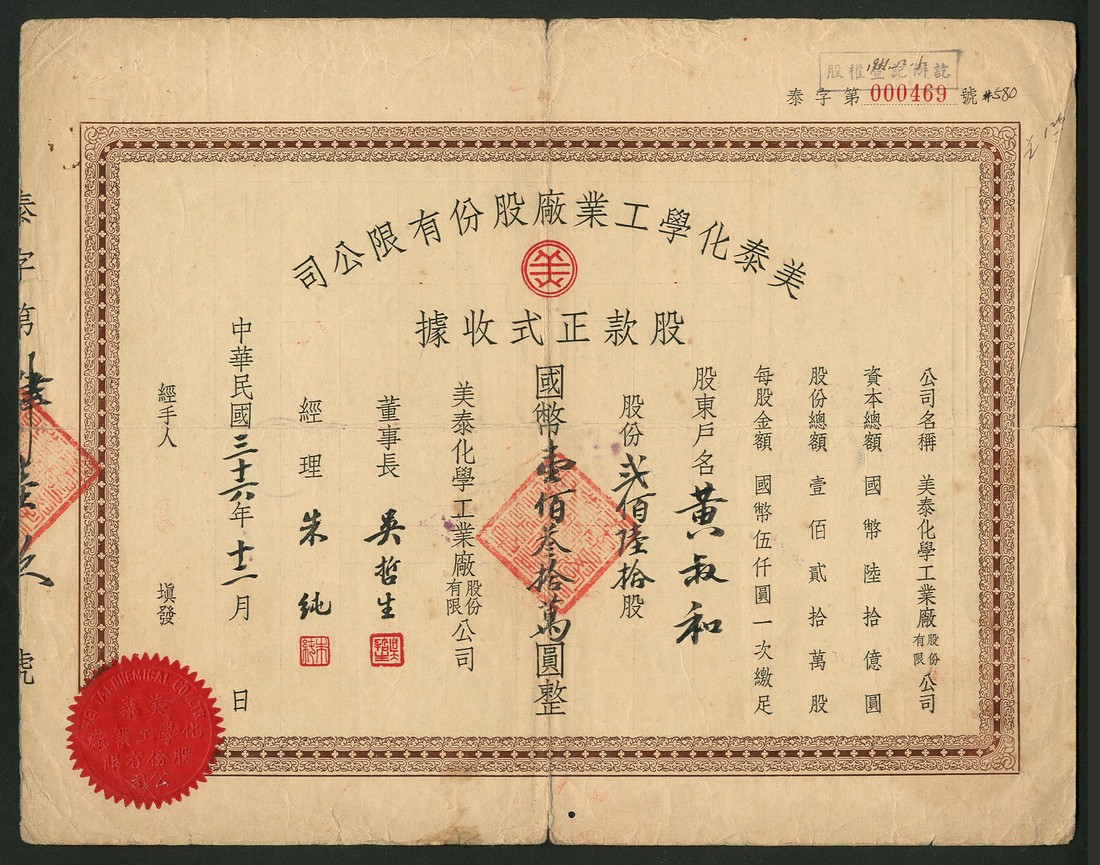 股權登記訖
泰字第000469號 #580
美泰化學工業廠股份有限公司
美
股款正式收據
公司名稱 美泰化學工業廠股份有限公司
資本總額 國幣陸拾億圓
股份總額 壹佰貳拾萬股
每股金額 國幣伍仟圓一次繳足
股東戶名 黄叔和
股份 貳佰陸拾股
國幣壹佰叁拾萬圓整
美泰化學工業廠股份有限公司
董事長 吳哲生
經理 朱純
中華民國三十六年十二月 日
經手人 填發
泰字第 號
MEI TAI CHEMICAL CO. LTD.
美泰化學工業廠股份有限公司